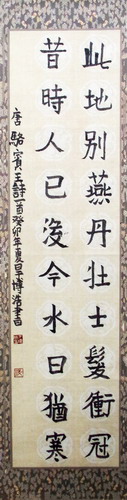 此地别燕丹壮士髮衝冠
昔時人已没今水日猶寒
唐駱賓王詩一首癸卯年夏旻博浩書